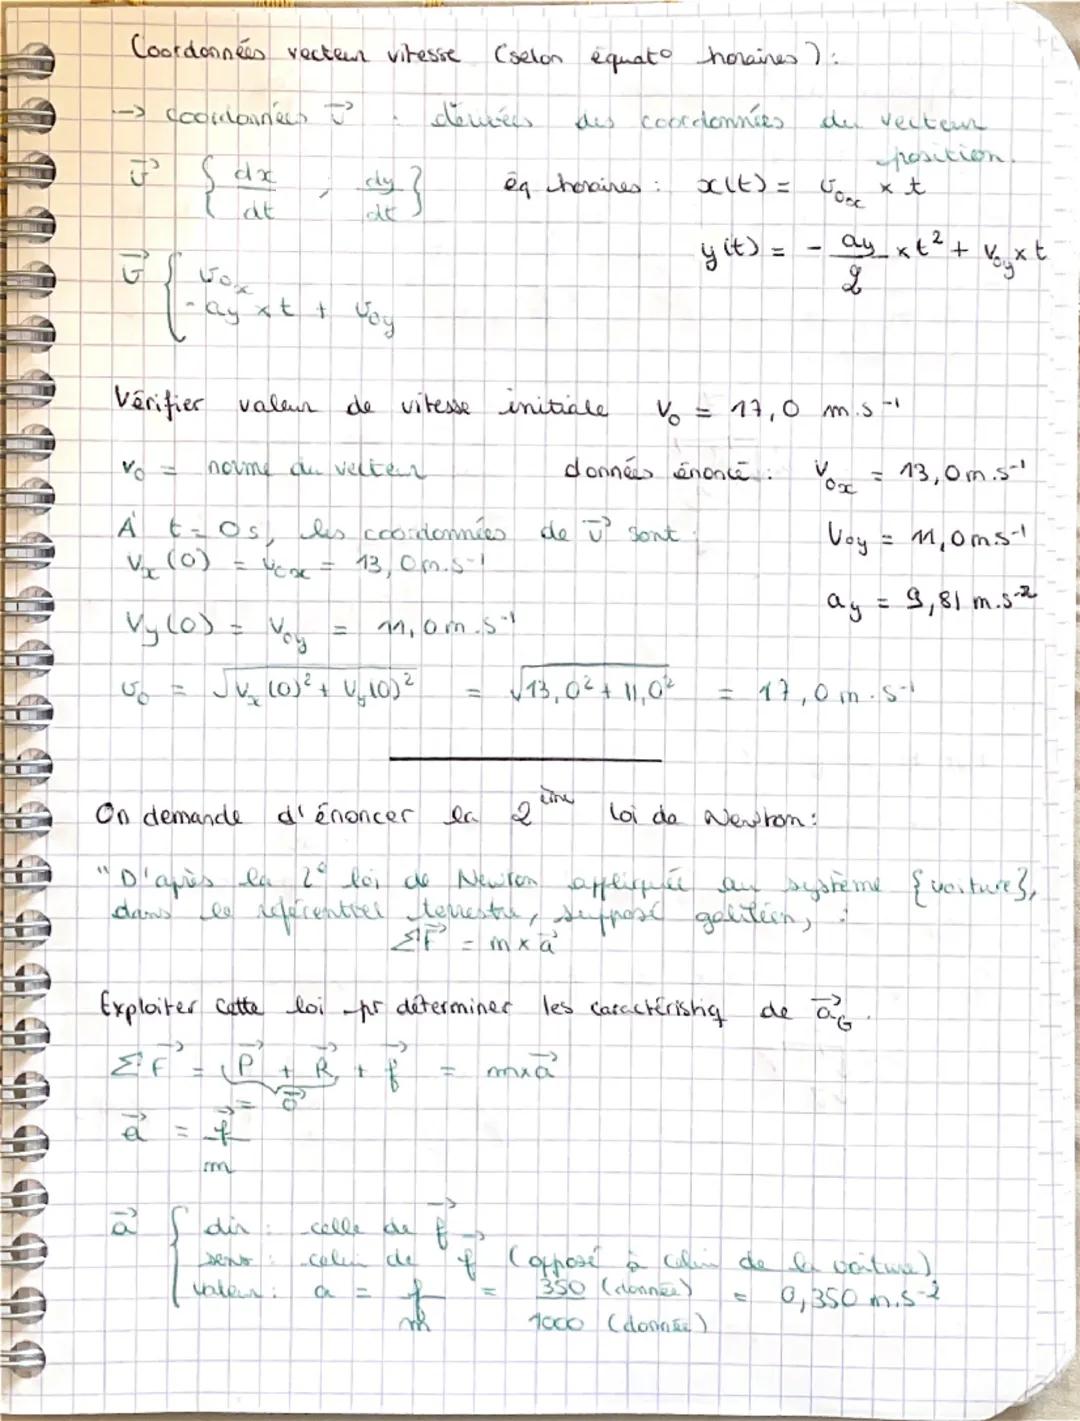 Coordonnées vecteur vitesse (selon équat° horaires) :
→ coordonnées v⃗ : dérivées des coordonnées du vecteur position.
v⃗ { dx/dt ; dy/dt } éq horaires : x(t) = v₀ₓ × t
y(t) = - ay/2 × t² + V₀y × t
v⃗ { v₀ₓ
- ay × t + v₀y
Vérifier valeur de vitesse initiale V₀ = 17,0 m.s⁻¹
v₀ = norme du vecteur données énoncé : V₀ₓ = 13,0 m.s⁻¹
À t = 0 s, les coordonnées de v⃗ sont : V₀y = 11,0 m.s⁻¹
Vₓ(0) = V₀ₓ = 13,0 m.s⁻¹
ay = 9,81 m.s⁻²
Vy(0) = V₀y = 11,0 m.s⁻¹
v₀ = √(Vₓ(0)² + Vy(0)²) = √(13,0² + 11,0²) = 17,0 m.s⁻¹
On demande d'énoncer la 2ème loi de Newton :
"D'après la 2° loi de Newton appliquée au système {voiture},
dans le référentiel terrestre, supposé galiléen, :
ΣF⃗ = m × a⃗
Exploiter cette loi pr déterminer les caractéristiq de a⃗G.
ΣF⃗ = P⃗ + R⃗ + f⃗ = m × a⃗
= 0⃗
a⃗ = f⃗/m
a⃗ { dir : celle de f⃗
sens : celui de f⃗ (opposé à celui de la voiture)
valeur : a = f/m = 350 (donnée)/1000 (donnée) = 0,350 m.s⁻²